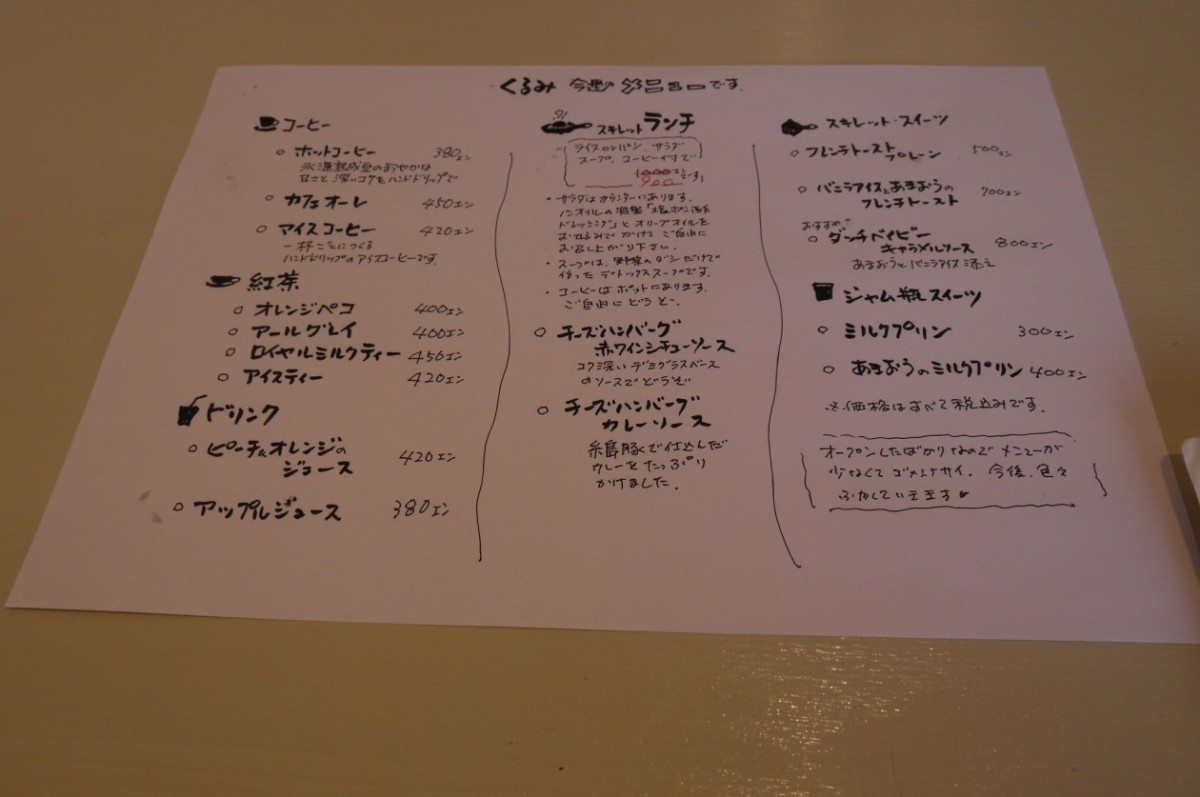 くるみ 今週の メニューです.
コーヒー
ホットコーヒー 380エン
氷温熟成豆のおだやかな
甘さと深いコクをハンドドリップで
カフェオーレ 450エン
アイスコーヒー 420エン
一杯ごとにつくる
ハンドドリップのアイスコーヒーです.
紅茶
オレンジペコ 400エン
アールグレイ 400エン
ロイヤルミルクティー 450エン
アイスティー 420エン
ドリンク
ピーチ&オレンジの
ジュース 420エン
アップルジュース 380エン
スキレットランチ
ライスorパン, サラダ
スープ, コーヒー付きで
1000エン
900 です!
・サラダはカウンターにあります.
ドレッシング」とオリーブオイルを
お好みで かけて ご自由に
お召し上がり下さい.
・スープは, 野菜のダシだけで
作った デトックススープです.
・コーヒーは ホットにあります.
ご自由にどうぞ.
チーズハンバーグ
赤ワインシチューソース
コク深いデミグラスベース
のソースでどうぞ
チーズハンバーグ
カレーソース
糸島豚で仕込んだ
カレーをたっぷり
かけました.
スキレット・スイーツ
フレンチトースト
プレーン 500エン
バニラアイスとあまおうの
フレンチトースト 700エン
おすすめ
ダッチベイビー
キャラメルソース 800エン
あまおうとバニラアイス添え
ジャム瓶スイーツ
ミルクプリン 300エン
あまおうのミルクプリン 400エン
※価格はすべて税込みです.
オープンしたばかりなので メニューが
少なくて ゴメンナサイ. 今後, 色々
ふやしていきます♥